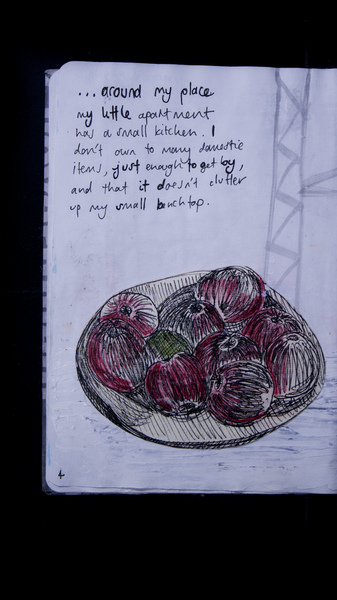 ...around my place
my little apartment
has a small kitchen. I
don't own to many domestic
items, just enough to get by,
and that it doesn't clutter
up my small benchtop.
4